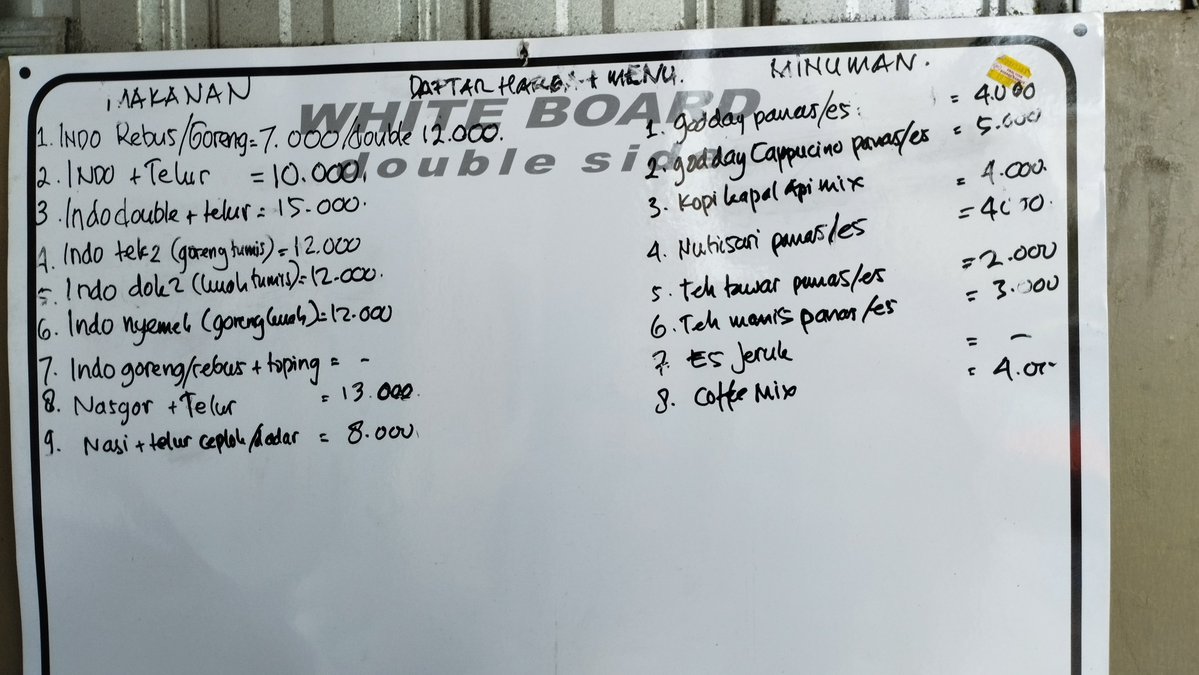 DAFTAR HARGA + MENU.
WHITE BOARD
double side
MAKANAN
1. INDO Rebus/Goreng = 7.000/double 12.000.
2. INDO + Telur = 10.000.
3. Indo double + telur = 15.000.
4. Indo tek2 (goreng tumis) = 12.000
5. Indo dok2 (kuah tumis) = 12.000.
6. Indo nyemek (goreng kuah) = 12.000
7. Indo goreng/rebus + toping = -
8. Nasgor + Telur = 13.000.
9. Nasi + telur ceplok/dadar = 8.000.
MINUMAN.
1. godday panas/es: = 4.000
2. godday Cappucino panas/es = 5.000
3. Kopi kapal Api mix = 4.000.
4. Nutrisari panas/es = 4000.
5. Teh tawar panas/es = 2.000
6. Teh manis panas/es = 3.000
7. ES Jeruk = -
8. Coffee Mix = 4.000